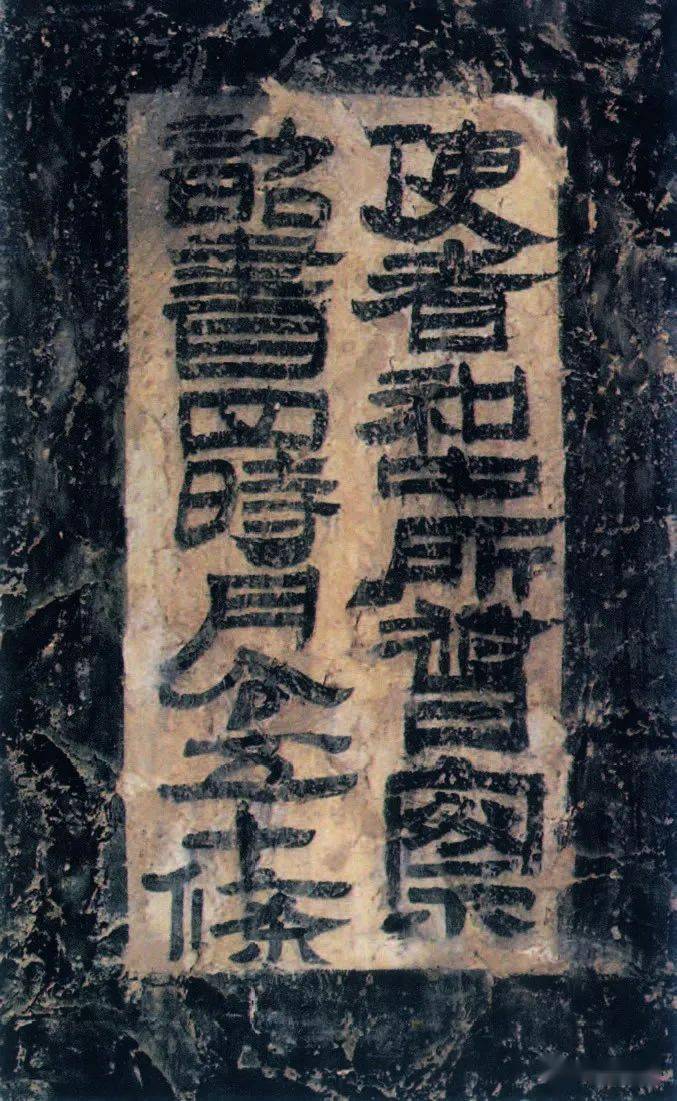 使者和中所督察
詔書四時月令五十條